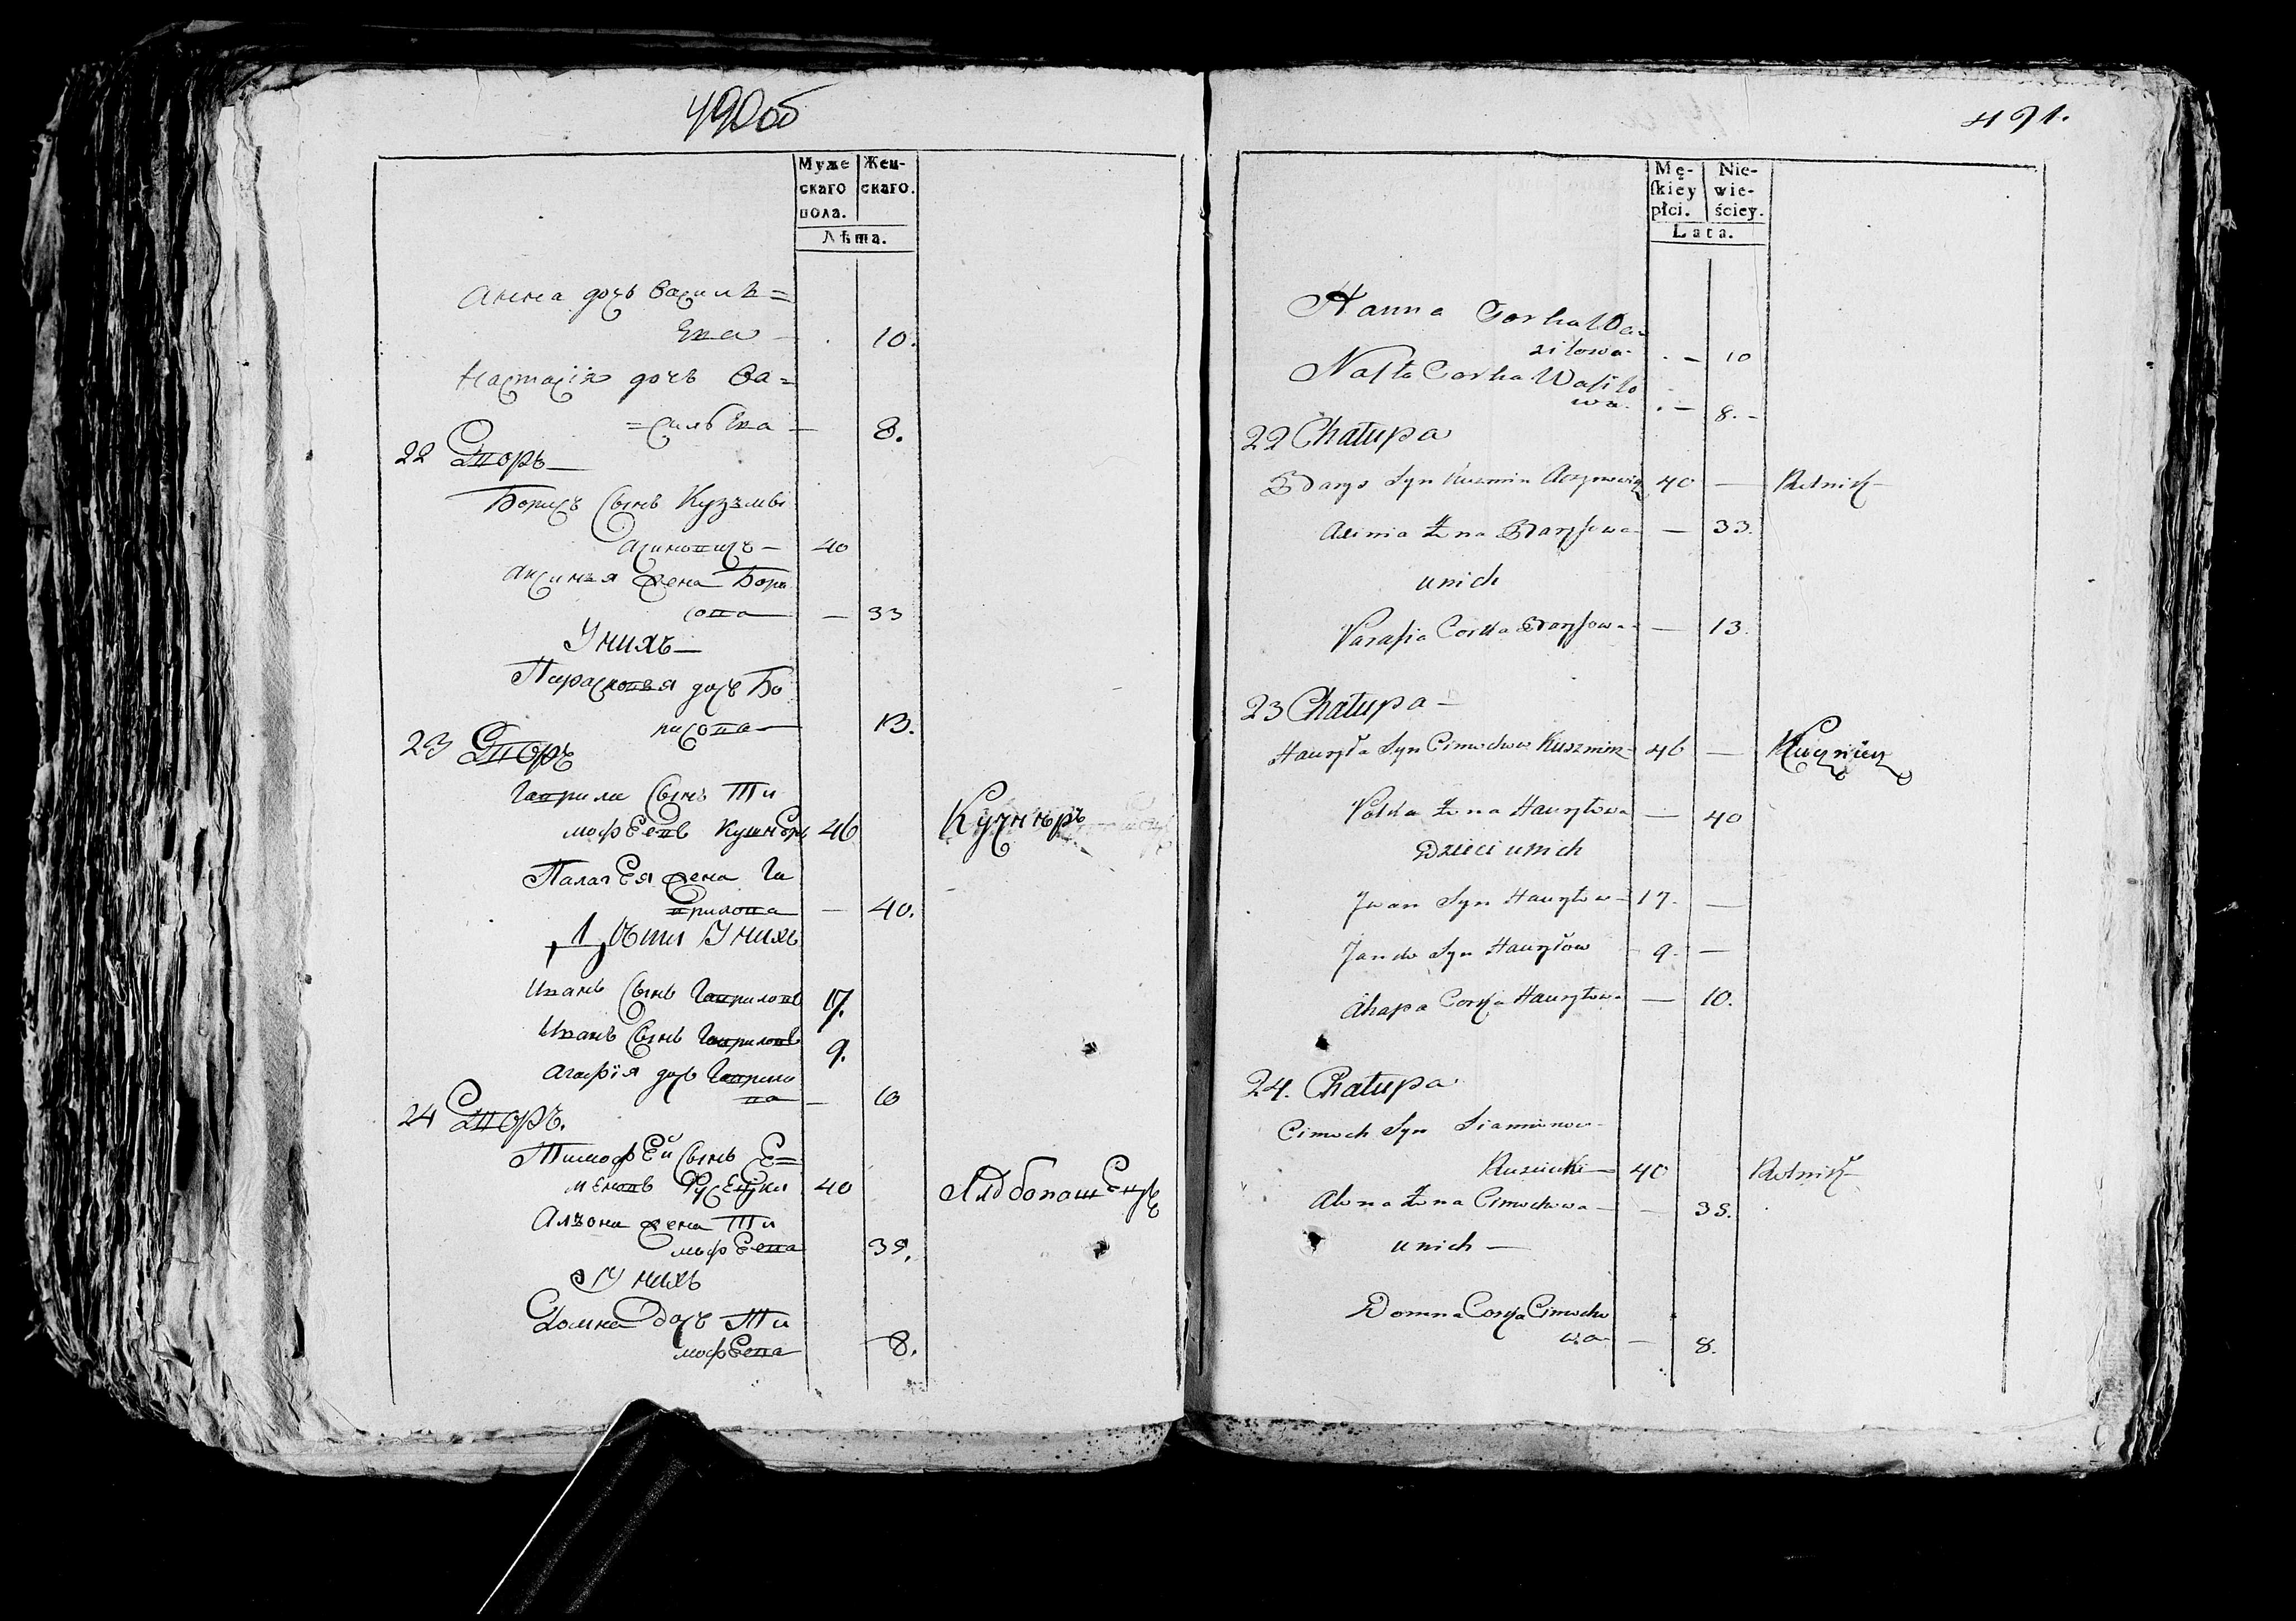 490об
Муже Жен-
скаго скаго.
пола.
Лѣта.
Анна дочъ Василъ=
ева — . 10.
Настасія дочъ Ва=
=сильева — 8.
22 Дворъ —
Борисъ сынъ Кузмы
— 40
Аксинья жена Бори
сова — — 33
У нихъ —
Парасковья дочъ Бо
рисова — 13.
23 Дворъ
Гаврила сынъ Ти
мофеевъ Кушнеръ 46 Кузнѣръ
Палагея жена Га
врилова — 40.
Дѣти У нихъ
Иванъ сынъ Гавриловъ 17.
Иванъ сынъ Гавриловъ 9.
Агафія дочъ Гаврило
ва — 10
24 Дворъ.
Тимофей сынъ Се=
меновъ Русецки 40 Хлѣбопашецъ
Алѣона жена Ти
мофеева 38.
У нихъ
Домна дочъ Ти
мофеева 8.
491.
Mę- Nie-
ſkiey wie-
płci. ściey.
Lata.
Hanna Corka Wa-
zilowa — . — 10
Nasta Corka Wasilo
wa. . — 8. —
22 Chałupa
Barys Syn Kuzmin 40 — Rolnik —
Axinia Żona Barysowa — 33.
u nich
Parasia Corka Barysowa — 13.
23 Chałupa —
Hauryła Syn Cimochow Kusznier 46 —
Połka Żona Hauryłowa — 40
Dzieci u nich
Jwan Syn Hauryłow — 17. —
Janko Syn Hauryłow — 9. —
Ahapa Corka Hauryłowa — 10.
24. Chałupa
Cimoch Syn Siamionow —
Rusiecki — 40 Rolnik —
Alona Żona Cimochowa — — 38.
u nich —
Domna Corka Cimocho
wa — — 8.